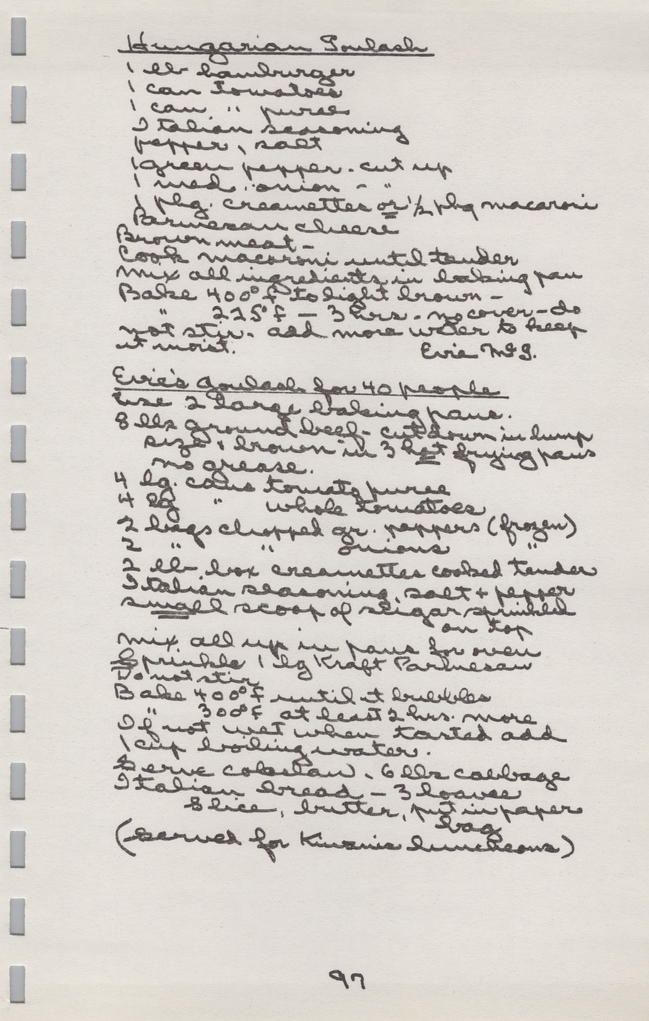 Hungarian Goulash
1 lb hamburger
1 can tomatoes
1 can " puree
Italian seasoning
pepper, salt
1 green pepper - cut up
1 med. onion - "
1 pkg. creamettes or ½ pkg macaroni
Parmesan cheese
Brown meat -
Cook macaroni until tender
Mix all ingredients in baking pan
Bake 400°F to light brown -
" 225°F - 3 hrs. - no cover - do
not stir - add more water to keep
it moist. Evie McG.
Evie's Goulash for 40 people
Use 2 large baking pans.
8 lbs ground beef - cut down in lump
size & brown in 3 hot frying pans
no grease.
4 lg. cans tomato puree
4 lg " whole tomatoes
2 bags chopped gr. peppers (frozen)
2 " " onions "
2 lb. box creamettes cooked tender
Italian seasoning, salt + pepper
small scoop of sugar sprinkled
on top
Mix all up in pans for oven
Sprinkle 1 lg Kraft Parmesan
Do not stir
Bake 400°F until it bubbles
" 300°F at least 2 hrs. more
If not wet when tasted add
1 cup boiling water.
Serve coleslaw. 6 lbs cabbage
Italian bread - 3 loaves
Slice, butter, put in paper
bag
(Served for Kiwanis luncheons)
97